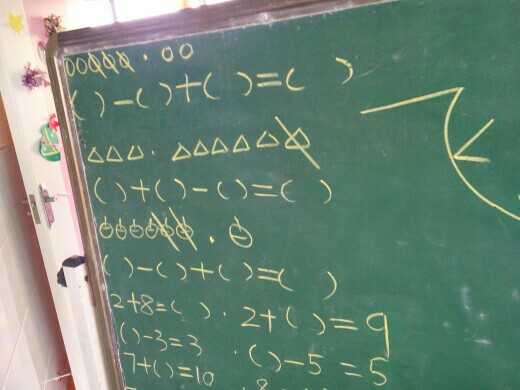 ( )-( )+( )=( )
( )+( )-( )=( )
( )-( )+( )=( )
2+8=( ) · 2+( )=9
( )-3=3 · ( )-5=5
7+( )=10